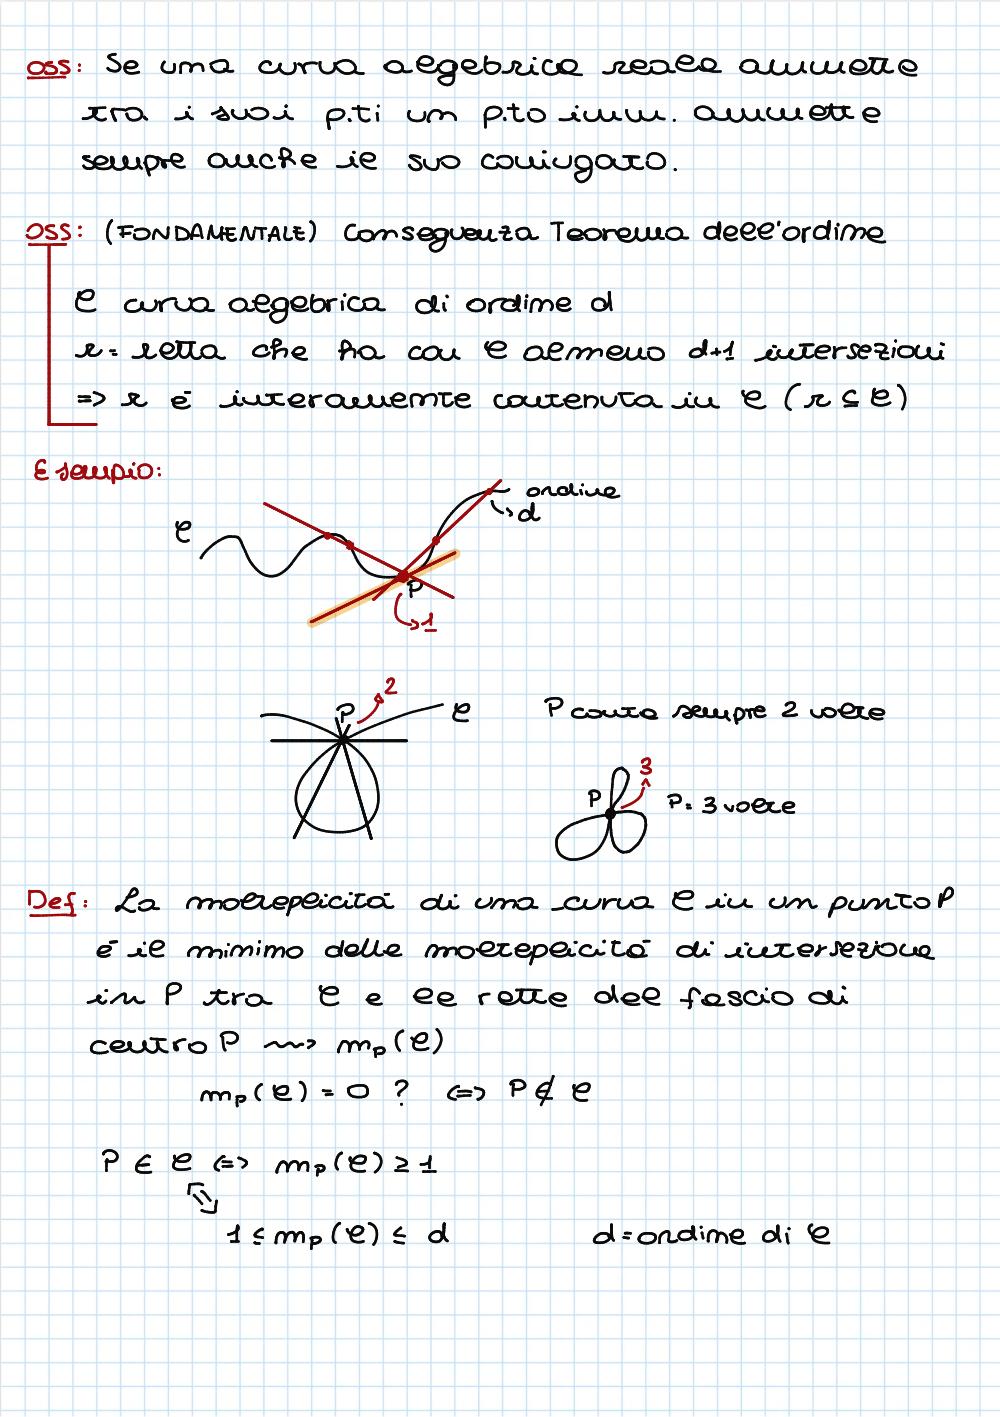 oss: Se una curva algebrica reale ammette
tra i suoi p.ti un p.to imm. ammette
sempre anche il suo coniugato.
oss: (FONDAMENTALE) Conseguenza Teorema dell'ordine
C curva algebrica di ordine d
r = retta che ha con C almeno d+1 intersezioni
=> r è interamente contenuta in C (r ⊆ C)
Esempio:
C
ordine
d
P
1
2
P
C
P conta sempre 2 volte
3
P
P = 3 volte
Def: La molteplicità di una curva C in un punto P
è il minimo delle molteplicità di intersezione
in P tra C e le rette del fascio di
centro P ⟿ mₚ(C)
mₚ(C) = 0 ? <=> P ∉ C
P ∈ C <=> mₚ(C) ≥ 1
1 ≤ mₚ(C) ≤ d
d = ordine di C